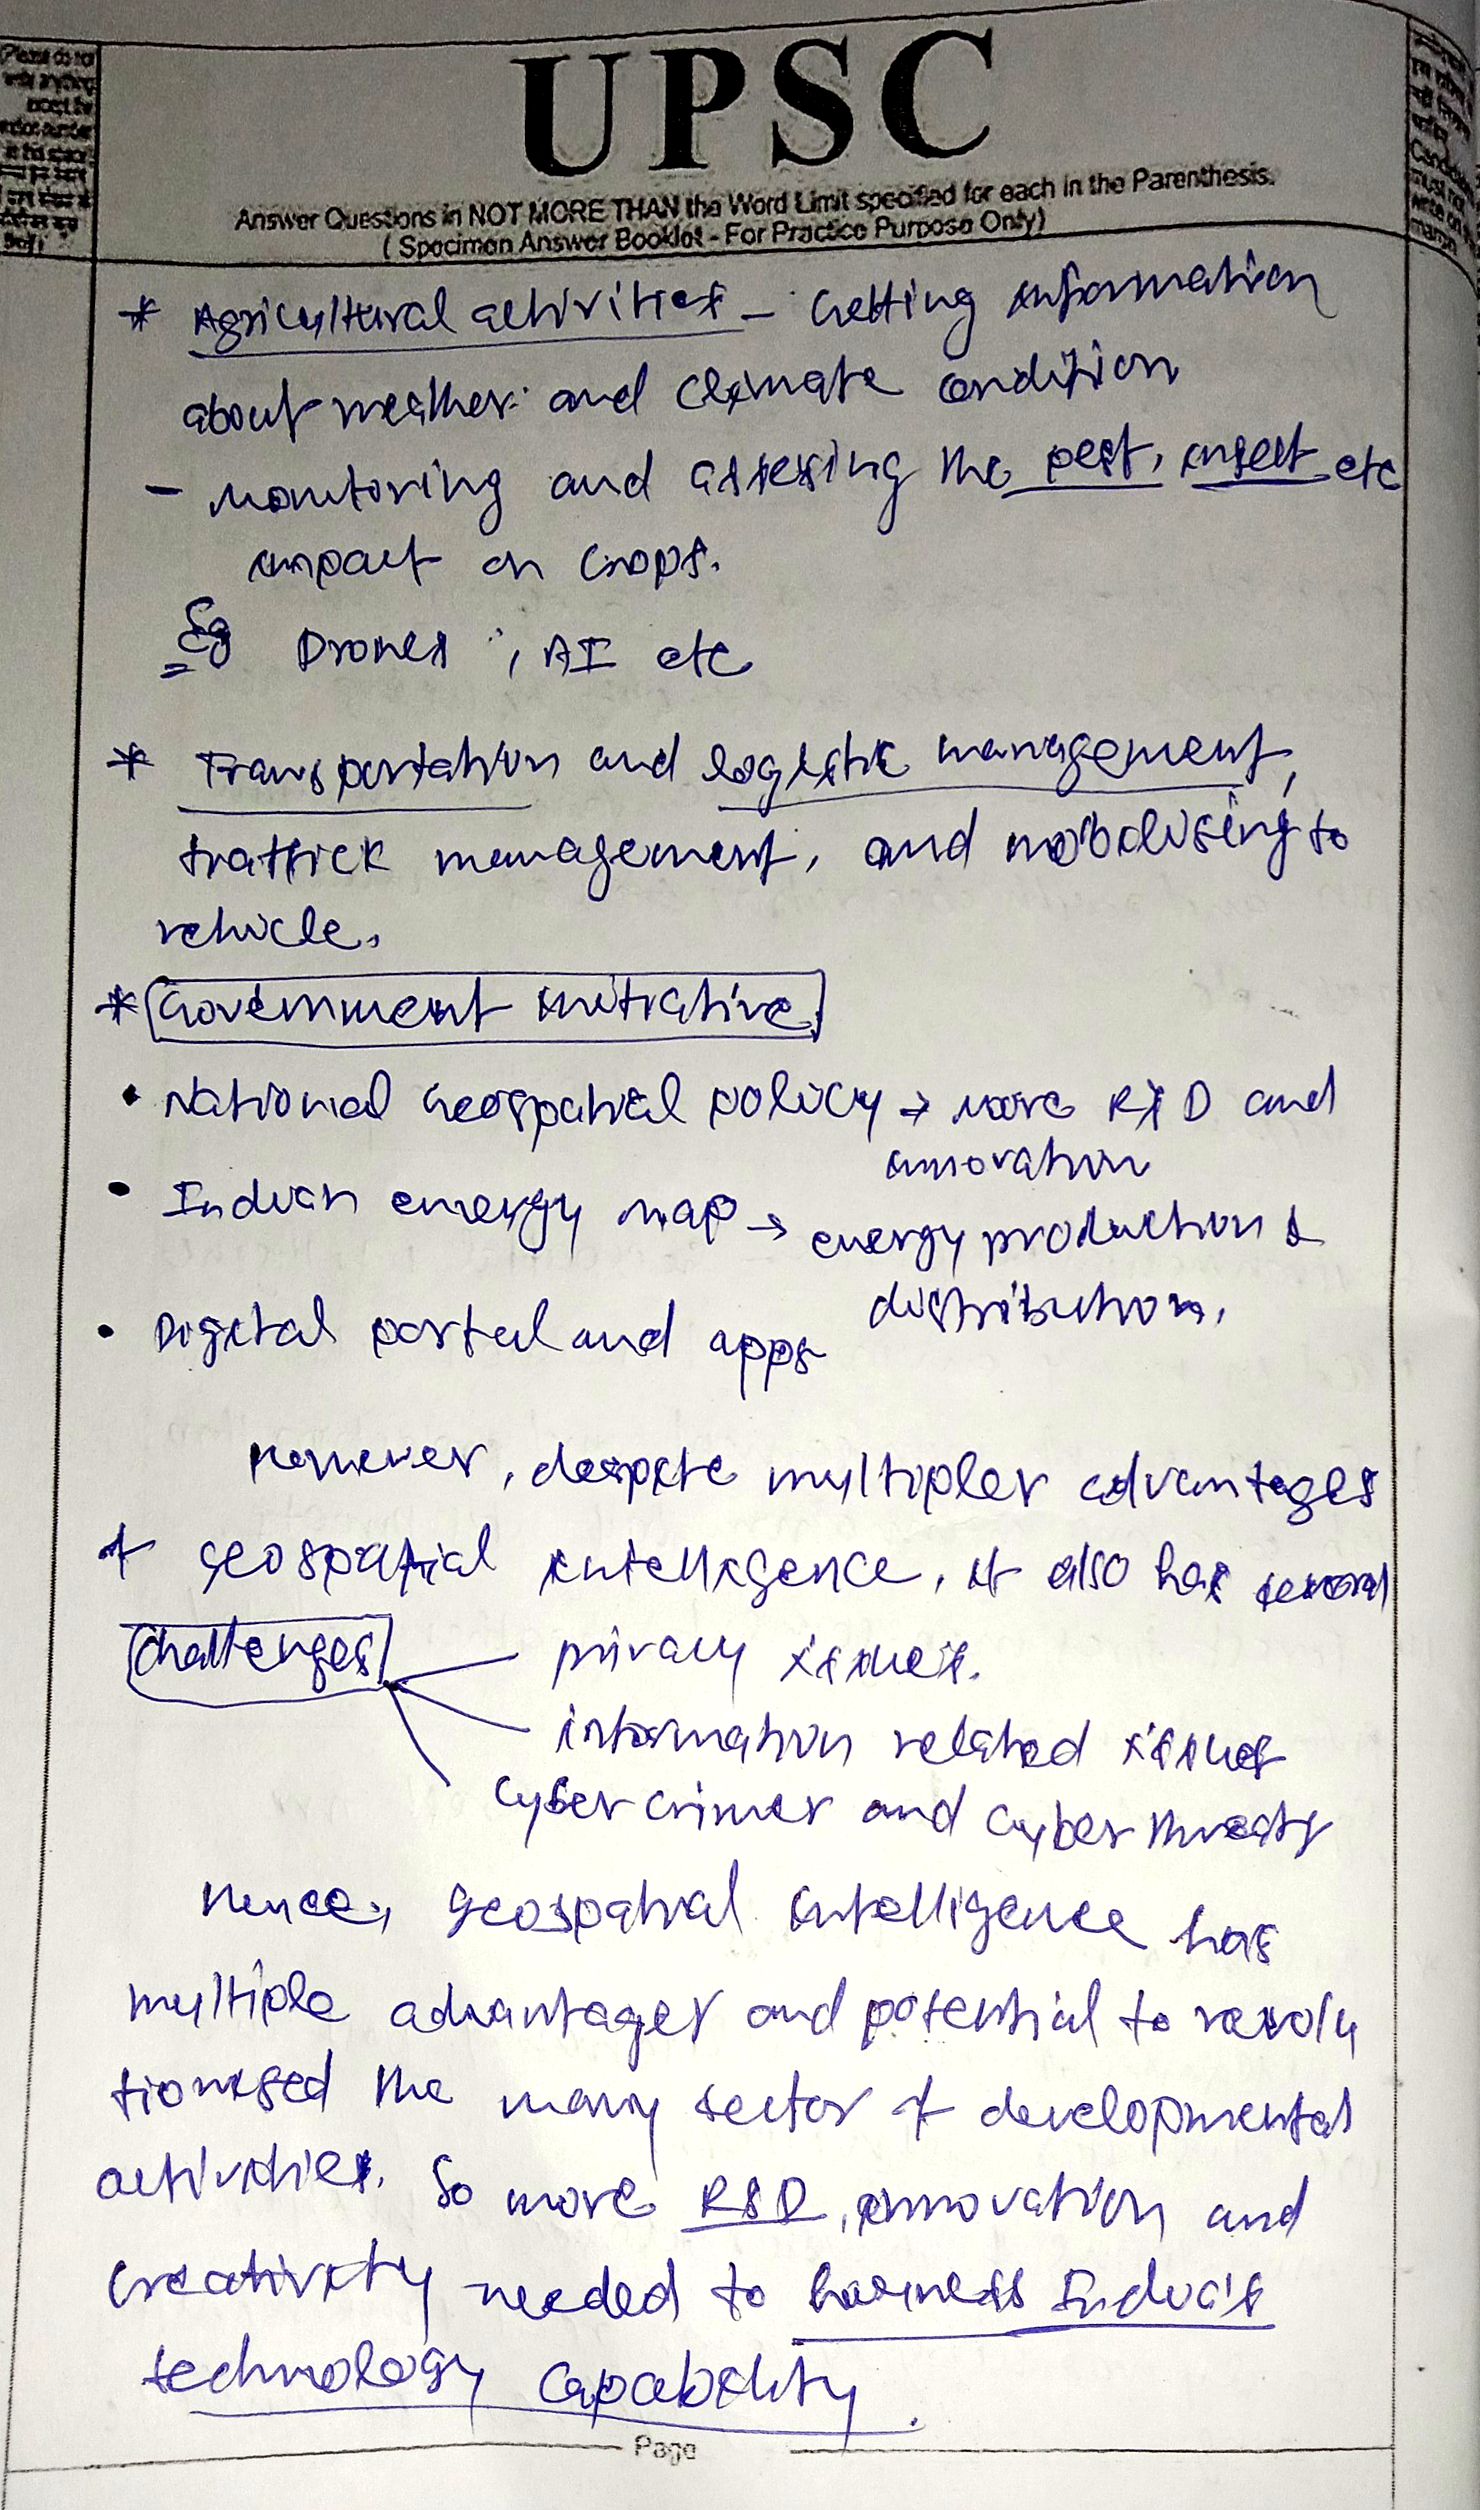 UPSC
Answer Questions in NOT MORE THAN the Word Limit specified for each in the Parenthesis.
( Specimen Answer Booklet - For Practice Purpose Only)
* Agricultural activities - Getting information
about weather and climate condition
- Monitoring and assessing the pest, insect etc
impact on crops.
Eg Drones, AI etc
* Transportation and logistic management,
traffick management, and mobolising to
vehicle.
* Government initiative
• National Geospatial policy → more R&D and
innovation
• Indian energy map → energy production &
distribution.
• Digital portal and apps
However, despite multiples advantages
of geospatial intelligence, it also has several
Challenges
privacy issues.
information related issues
Cyber crimes and cyber threats
Hence, geospatial intelligence has
multiple advantages and potential to revolu
tionised the many sector of developmental
activities. So more R&D, innovation and
creativity needed to harness India's
technology capability.
Page